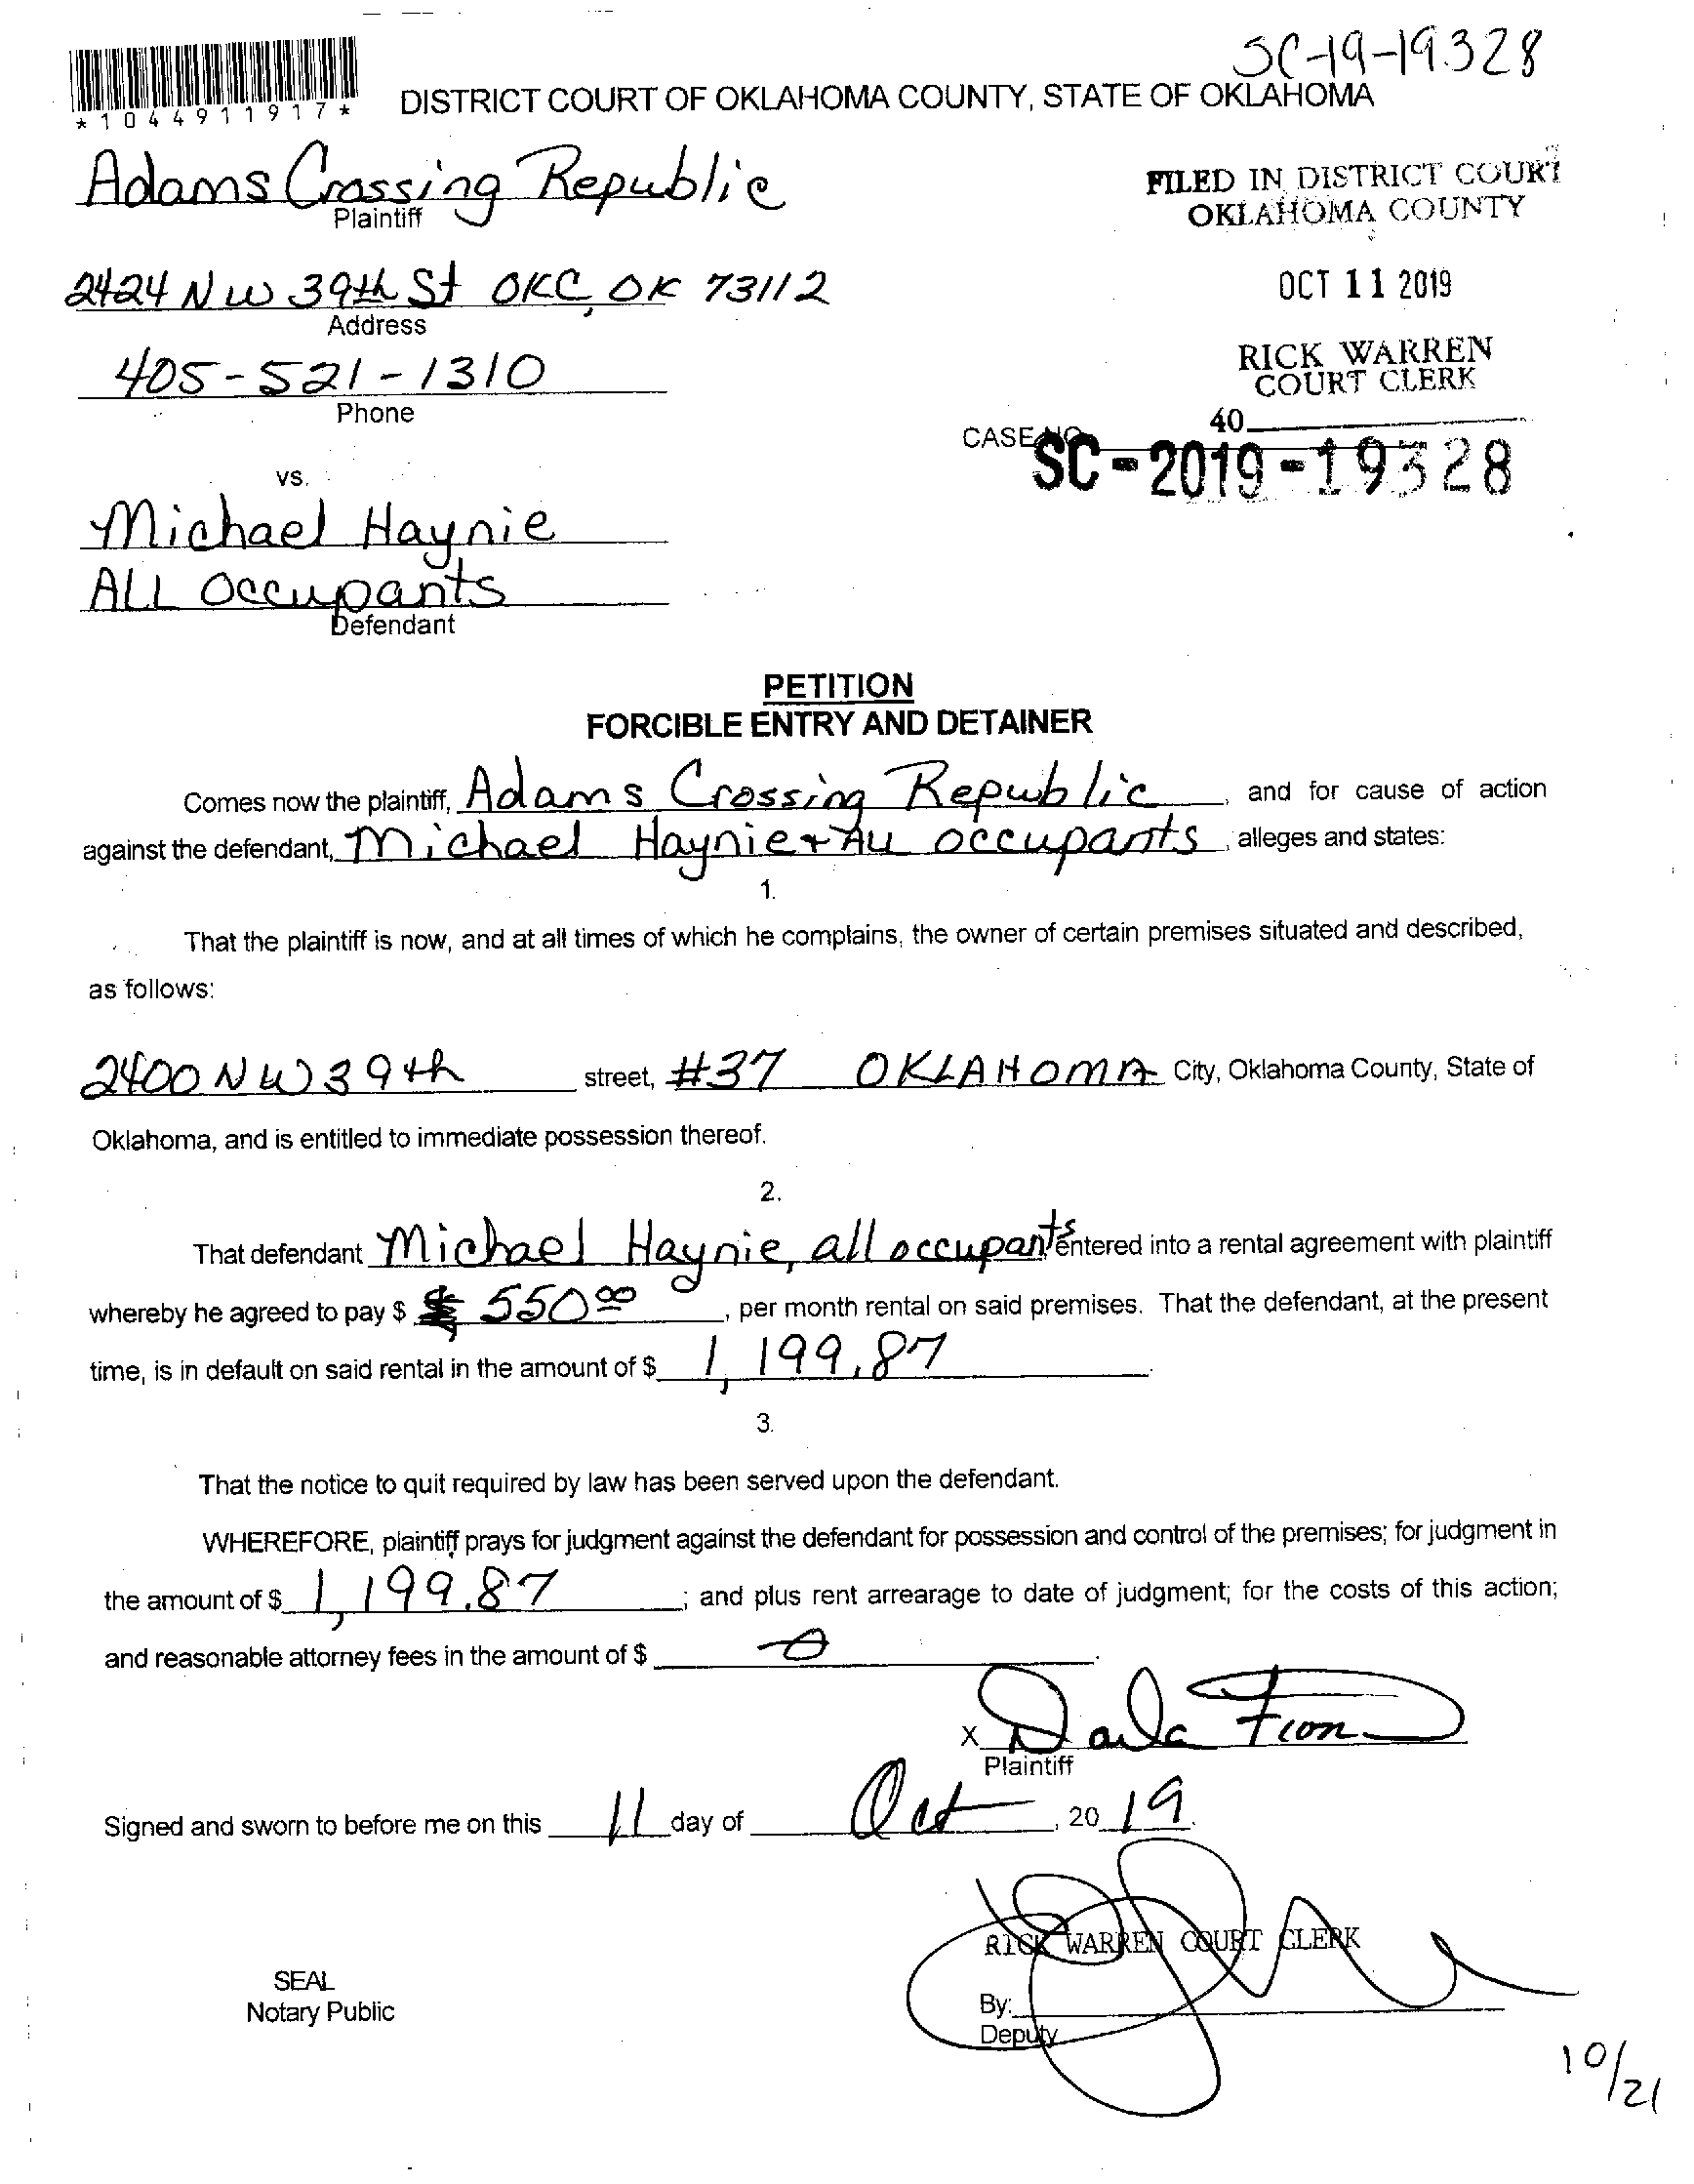 SC-19-19328
*1044911917*
DISTRICT COURT OF OKLAHOMA COUNTY, STATE OF OKLAHOMA
Adams Crossing Republic
Plaintiff
FILED IN DISTRICT COURT
OKLAHOMA COUNTY
2424 NW 39th St OKC, OK 73112
Address
OCT 11 2019
405-521-1310
Phone
RICK WARREN
COURT CLERK
40
CASE NO.
SC-2019-19328
vs.
Michael Haynie
ALL Occupants
Defendant
PETITION
FORCIBLE ENTRY AND DETAINER
Comes now the plaintiff, Adams Crossing Republic, and for cause of action
against the defendant, Michael Haynie + All occupants, alleges and states:
1.
That the plaintiff is now, and at all times of which he complains, the owner of certain premises situated and described,
as follows:
2400 NW 39th street, #37 OKLAHOMA City, Oklahoma County, State of
Oklahoma, and is entitled to immediate possession thereof.
2.
That defendant Michael Haynie, all occupants entered into a rental agreement with plaintiff
whereby he agreed to pay $ 550 00, per month rental on said premises. That the defendant, at the present
time, is in default on said rental in the amount of $ 1,199.87.
3.
That the notice to quit required by law has been served upon the defendant.
WHEREFORE, plaintiff prays for judgment against the defendant for possession and control of the premises; for judgment in
the amount of $ 1,199.87; and plus rent arrearage to date of judgment; for the costs of this action;
and reasonable attorney fees in the amount of $ 0.
X Darla
Plaintiff
Signed and sworn to before me on this 11 day of Oct, 20 19.
RICK WARREN COURT CLERK
SEAL
Notary Public
By:
Deputy
10/21